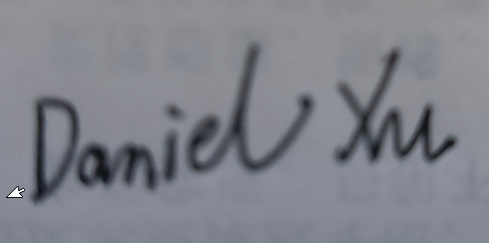 Daniel Xu